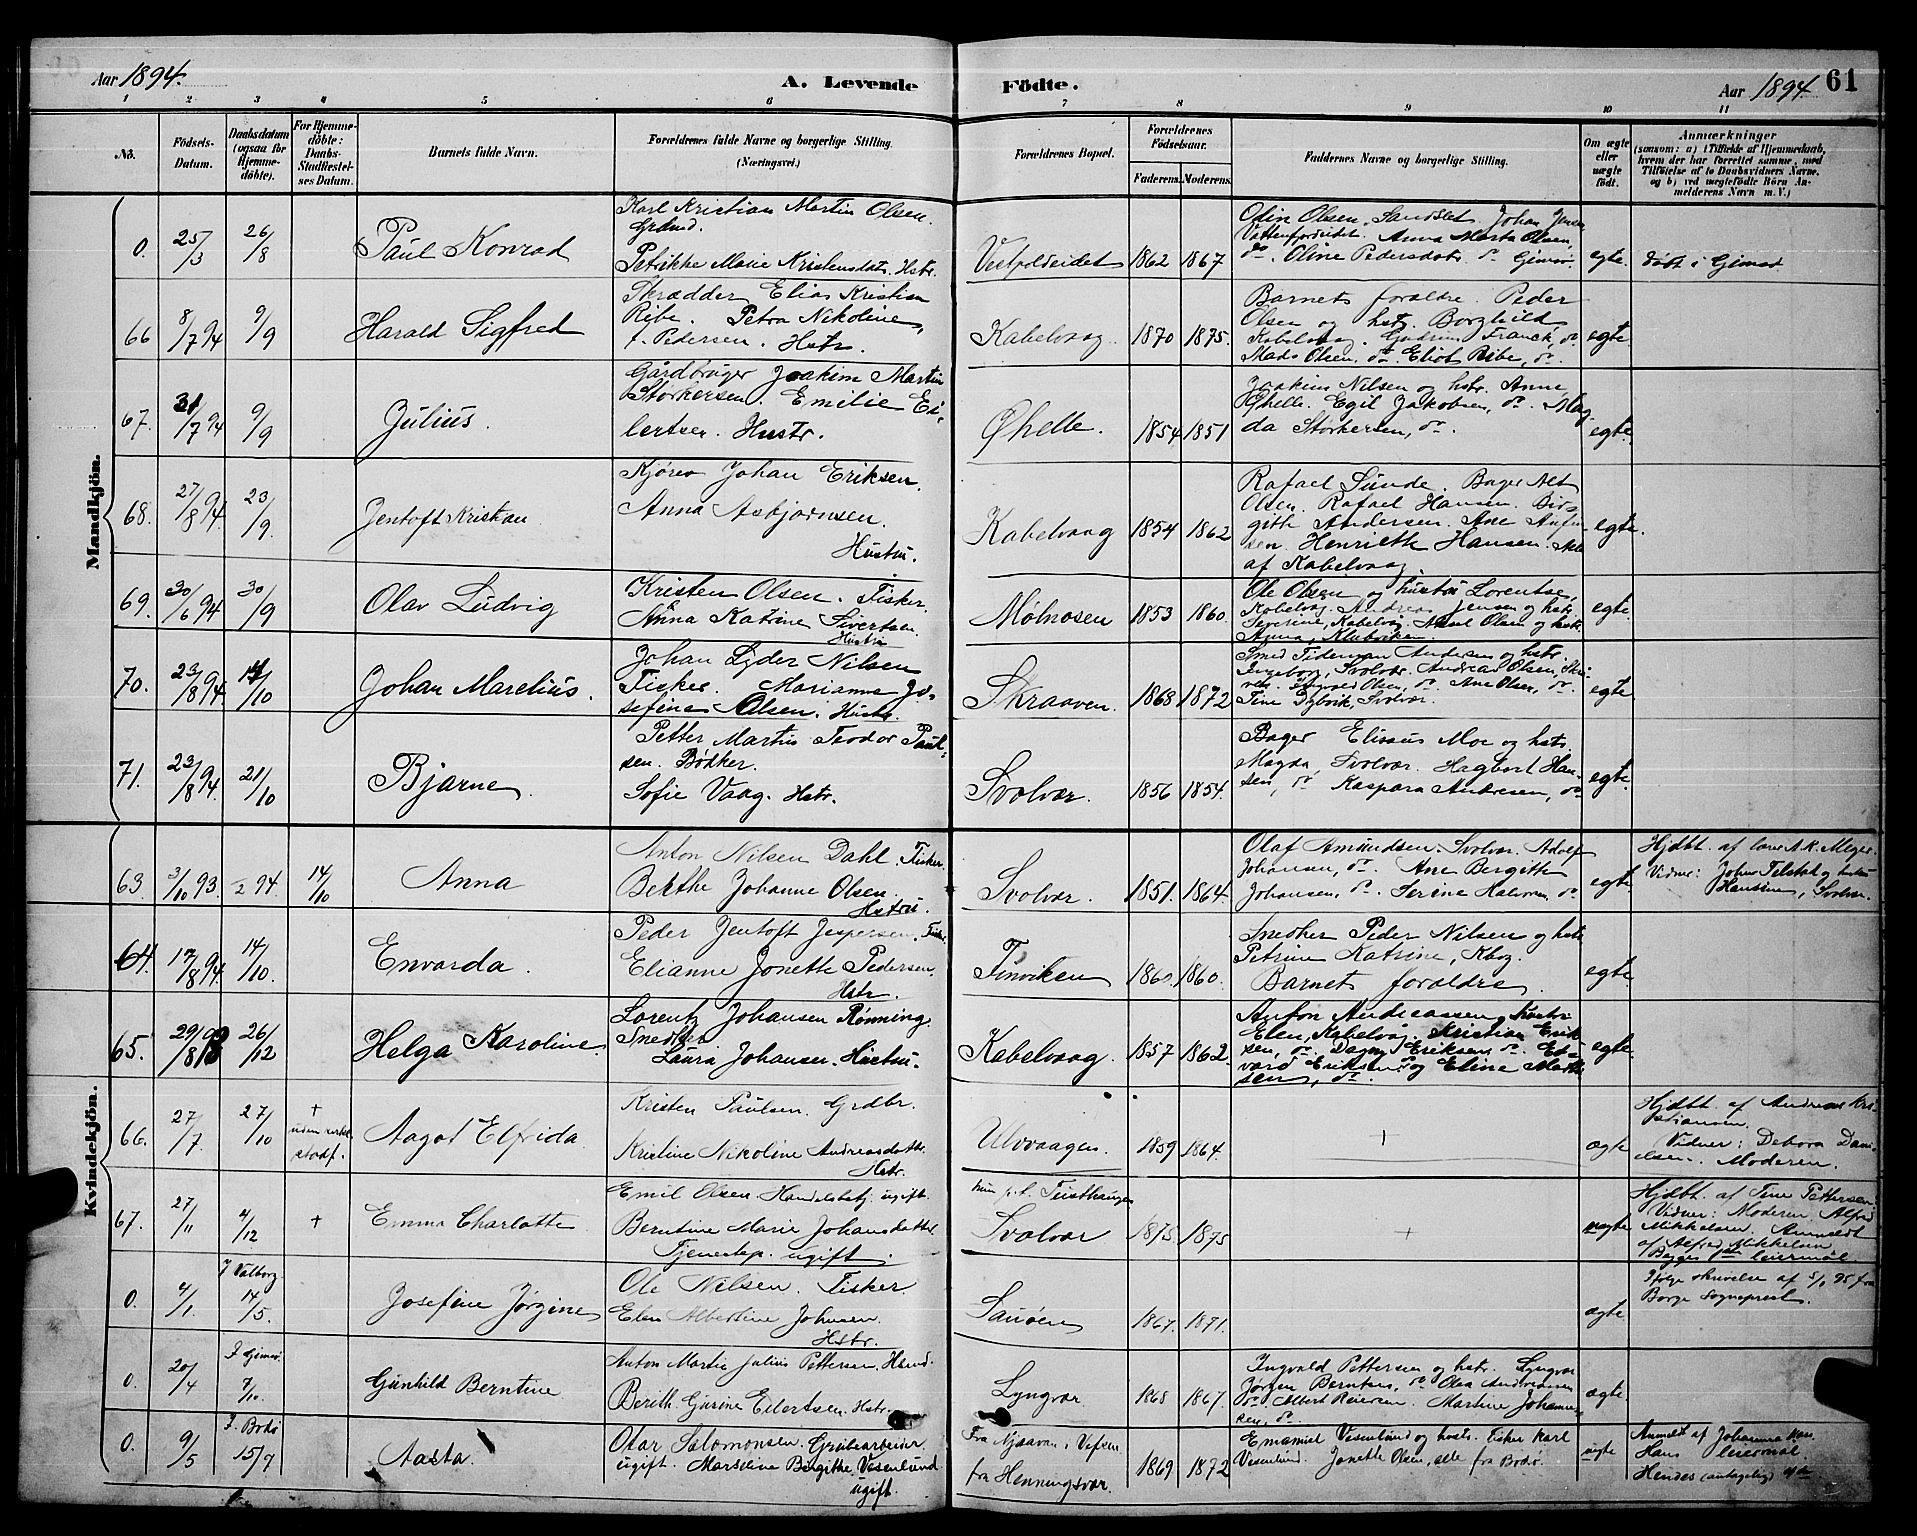 Aar 1894.
A. Levende
Födte.
Aar 1894
61
1 2 3 4 5 6 7 8 9 10 11
No.
Födsels-
Datum.
Daabsdatum
(ogsaa for
Hjemme-
döbte).
For Hjemme-
döbte:
Daabs-
Stadfæstel-
ses Datum.
Barnets fulde Navn.
Forældrenes fulde Navne og borgerlige Stilling.
(Næringsvei.)
Forældrenes Bopæl.
Forældrenes
Födselsaar.
Faderens. Moderens.
Faddernes Navne og borgerlige Stilling.
Om ægte
eller
uægte
födt.
Anmærkninger
(saasom: a) i Tilfælde af Hjemmedaab,
hvem der har forrettet samme, med
Tilföielse af to Daabsvidners Navne,
og b) ved uægtefödte Börn An-
melderens Navn m. V.)
Mandkjön.
0. 25/3 26/8 Paul Konrad
Karl Kristian Martin Olsen.
Grdmd.
Petrikke Marie Kristensdat. Hstr.
Vestpoldeidet 1862 1867
Odin Olsen, Sandslet. Johan Jensen
Vattenfjordeidet. Anna Marta Olsen,
do. Oline Pedersdatr. do Gimsø.
egte. døbt i Gimsø
66 8/7 94 9/9 Harald Sigfred
Skrædder Elias Kristian
Ribe. Petra Nikoline,
f. Pedersen. Hstr.
Kabelvaag 1870 1875.
Barnets foraldre. Peder
Olsen og hstr. Borghild
Kabelvaag. Gudrun Franck, do
Mads Olsen, do. Eliot Ribe, do.
egte
67. 31/7 94 9/9 Julius.
Gårdbruger Joakim Martin
Storkersen. Emilie Ei-
lertsen. Hustr.
Øhelle. 1854 1851
Joakim Nilsen og hstr. Anne
Øhelle. Egil Jakobsen, do. Mag
da Storkersen, do.
egte.
68. 27/8 94 23/9 Jentoft Kristian
Johan Eriksen.
Anna Asbjørnsen.
Hustru.
Kabelvaag 1854 1862
Rafael Sunde. Bager Alt
Olsen. Rafael Hansen. Bir-
gitte Andersen. Ane
sen. Henriette Hansen. Alle
af Kabelvaag.
egte.
69. 30/6 94 30/9 Olav Ludvig
Kristen Olsen. Fisker.
Anna Katrine Sivertsen.
Hustru
Mølnosen 1853 1860.
Ole Olsen og hustru Lorentse,
Kabelvåg. Andreas Jensen og hstr.
Severine, Kabelvåg. Olsen og hstr.
Anna,
egte.
70. 23/8 94 14/10 Johan Marelius.
Johan Lyder Nilsen
Fisker. Marianne Jo-
sefine Olsen. Hustr.
Skraaven 1868 1872
Smed Tideman Andersen og hstr.
Ingeborg, Svolvær. Andreas Olsen, Skra-
ven. Olsen, do. Ane Olsen, do.
Tine Svolvær.
egte
71. 23/8 94. 21/10 Bjarne
Petter Martin Teodor Paul-
sen. Bødker.
Sofie Vaag. Hstr.
Svolvær. 1856 1854.
Bager Elisæus Moe og hstr.
Magda, Svolvær. Hagbart Han-
sen, do Kaspara Andresen, do
egte.
Kvindekjön.
63 3/10 93 /2 94. 14/10 Anna
Anton Nilsen Dahl. Fisker
Berthe Johanne Olsen.
Hstru.
Svolvær. 1851. 1864.
Olaf Amundsen. Svolvær. Adolf
Johansen, do. Ane Bergitte
Johansen, do. Serine Halvorsen. do
egte
Hjdbt. af A. K. Meyer.
Vidner: Johan og hustru
Svolvær.
64. 17/8 94. 14/10. Envarda.
Peder Jentoft Jespersen. Fisker
Elianne Jonette Pedersen.
Hstr.
Finviken 1860. 1860.
Snedker Peder Nilsen og hstr
Petrine Katrine, Kbvg.
Barnet foraldre.
egte
65. 29/8 26/12 Helga Karoline.
Lorentz Johansen Rønning.
Snedker
Laura Johansen. Hustru.
Kabelvaag. 1857 1862
Anton Andreassen hustr
Elen, Kabelvåg, Kristian Erik-
sen, do. Dagny Eriksen do. Ed-
vard Eriksen og Eline Mart-
sen, do.
egte.
66. 27/7 27/10 +
uden
stadf.
Aagot Elfrida
Kristen Paulsen. Grdbr.
Kristine Nikoline Andreasdatter
Hstr.
Ulvaagen. 1859 1864. +
ægte
Hjdbt. af Andreas Kri-
stiansen.
Vidner: Debora Dani-
elsen. Moderen.
67. 27/11 4/12 + Emma Charlotte
Emil Olsen. Handelsbetj. ugift.
Berntine Marie Johansdatter
Tjenestep. ugift.
hun p.t.
Svolvær 1875. 1875 +
uægte
Hjdbt. af Tine Pettersen.
Vidner: Moderen, Alfred
Mikkelsen. Anmeldt
af Alfred Mikkelsen
Begges leiermål
0. 4/1 I Valberg. 14/5. Josefine Jørgine
Ole Nilsen. Fisker
Elen Albertine Johnsen.
Hstr.
Sauøen 1867. 1871.
ægte
Ifølge skrivelse af 5/1 95 fra
Borge Sogneprest.
0. 20/4 I Gimsø. 7/10. Gunhild Berntine
Anton Martin Julius Pettersen. Hand.
Berith Gurine Eilertsen. Hstr.
Lyngvær 1868 1867.
Ingvald Pettersen og hstr. Lyngvær
Jørgen Berntsen, do. Olea Andreassen
do. Albert Reiersen. Martine Johannes-
sen, do
ægte
0. 9/5 I. Bodø 15/7 Aasta.
Olar Salomonsen. Grubearbeider
ugift. Marseline Bergithe Vesenlund.
ugift.
Fra i Vefsen
fra Henningsvær. 1869 1872
Emanuel Vesenlund og hstr. Fisker Karl
Vesenlund. Jonette Olsen, alle fra Bodø.
uægte
Anmeldt af Johanna
Hans leiermål
Hendes (antagelig)